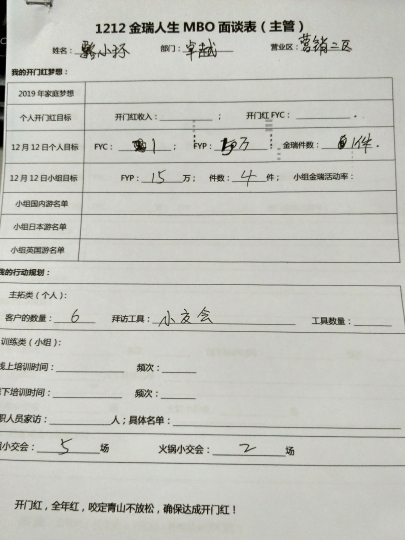 1212 金瑞人生 MBO 面谈表（主管）
姓名： 小环 部门：卓越 营业区：营销二区
我的开门红梦想：
2019 年家庭梦想
个人开门红目标 开门红收入： ； 开门红 FYC ： 。
12 月 12 日个人目标 FYC： 1 ； FYP： 万； 金瑞件数： 1件 .
12 月 12 日小组目标 FYP： 15 万； 件数： 4 件； 小组金瑞活动率：
小组国内游名单
小组日本游名单
小组英国游名单
我的行动规划：
主拓类（个人）：
客户的数量： 6 拜访工具： 小交会 工具数量：
训练类（小组）：
线上培训时间： 频次：
下培训时间： 频次：
职人员家访： 人；具体名单：
小交会： 5 场 火锅小交会： 2 场
开门红，全年红，咬定青山不放松，确保达成开门红！